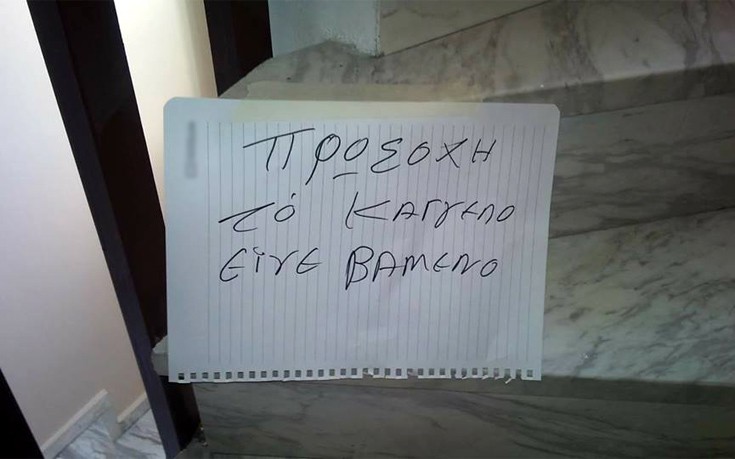 ΠΡΟΣΟΧΗ
τό ΚΑΓγΕΛΟ
ΕΙγΕ ΒΑΜΕΝΟ